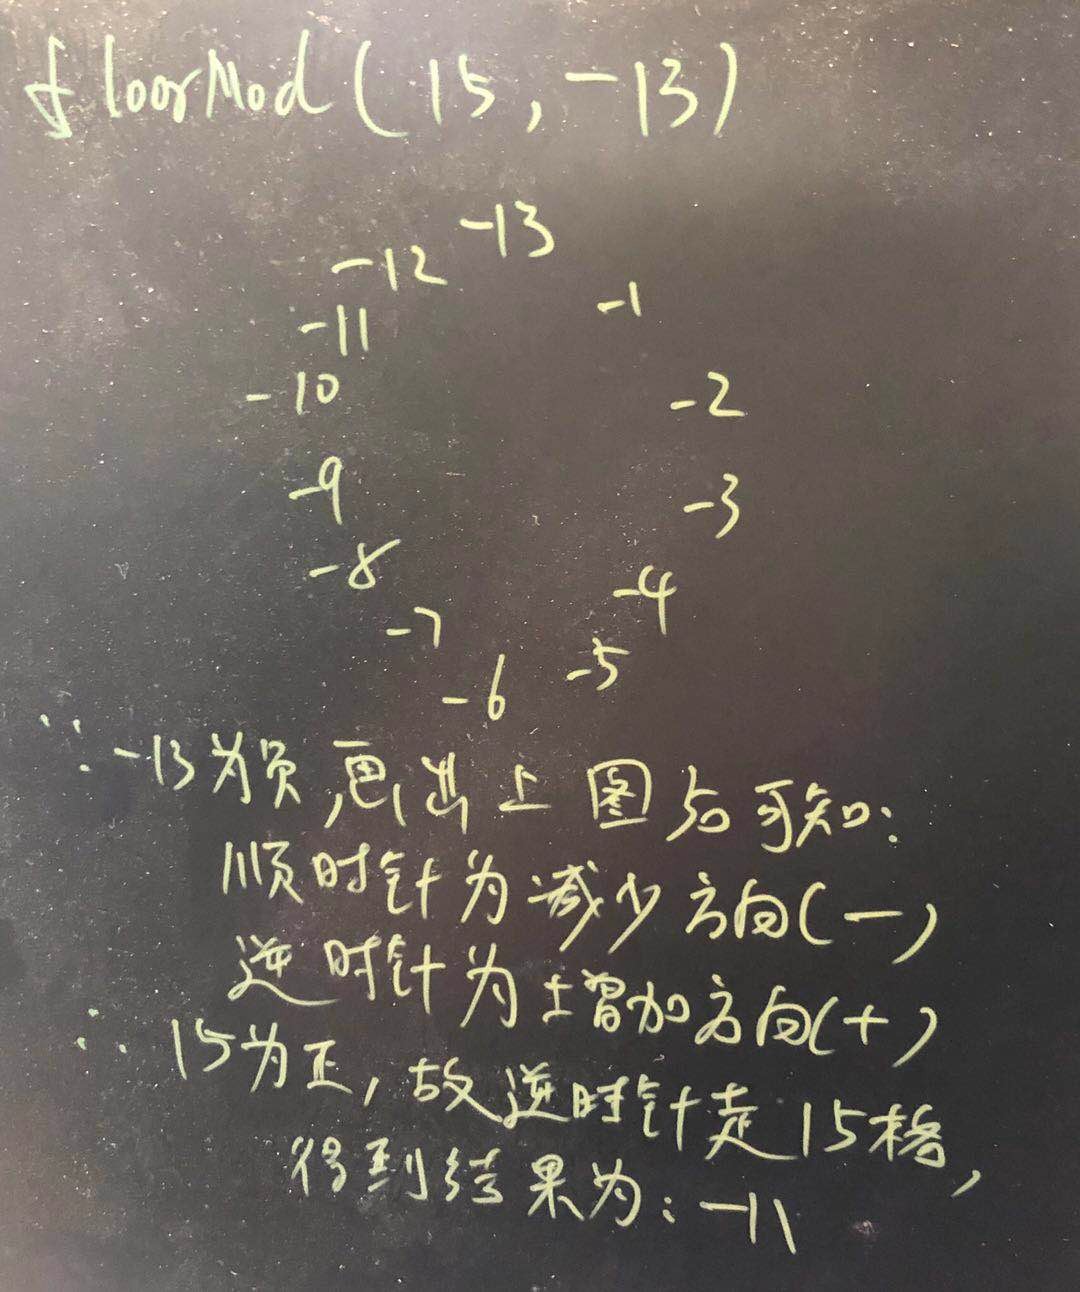 floorMod(15,-13)
-13
-12
-1
-11
-10
-2
-9
-3
-8
-4
-7
-5
-6
∵-13为负,画出上图后可知:
顺时针为减少方向(一)
逆时针为增加方向(+)
∴15为正,故逆时针走15格,
得到结果为:-11